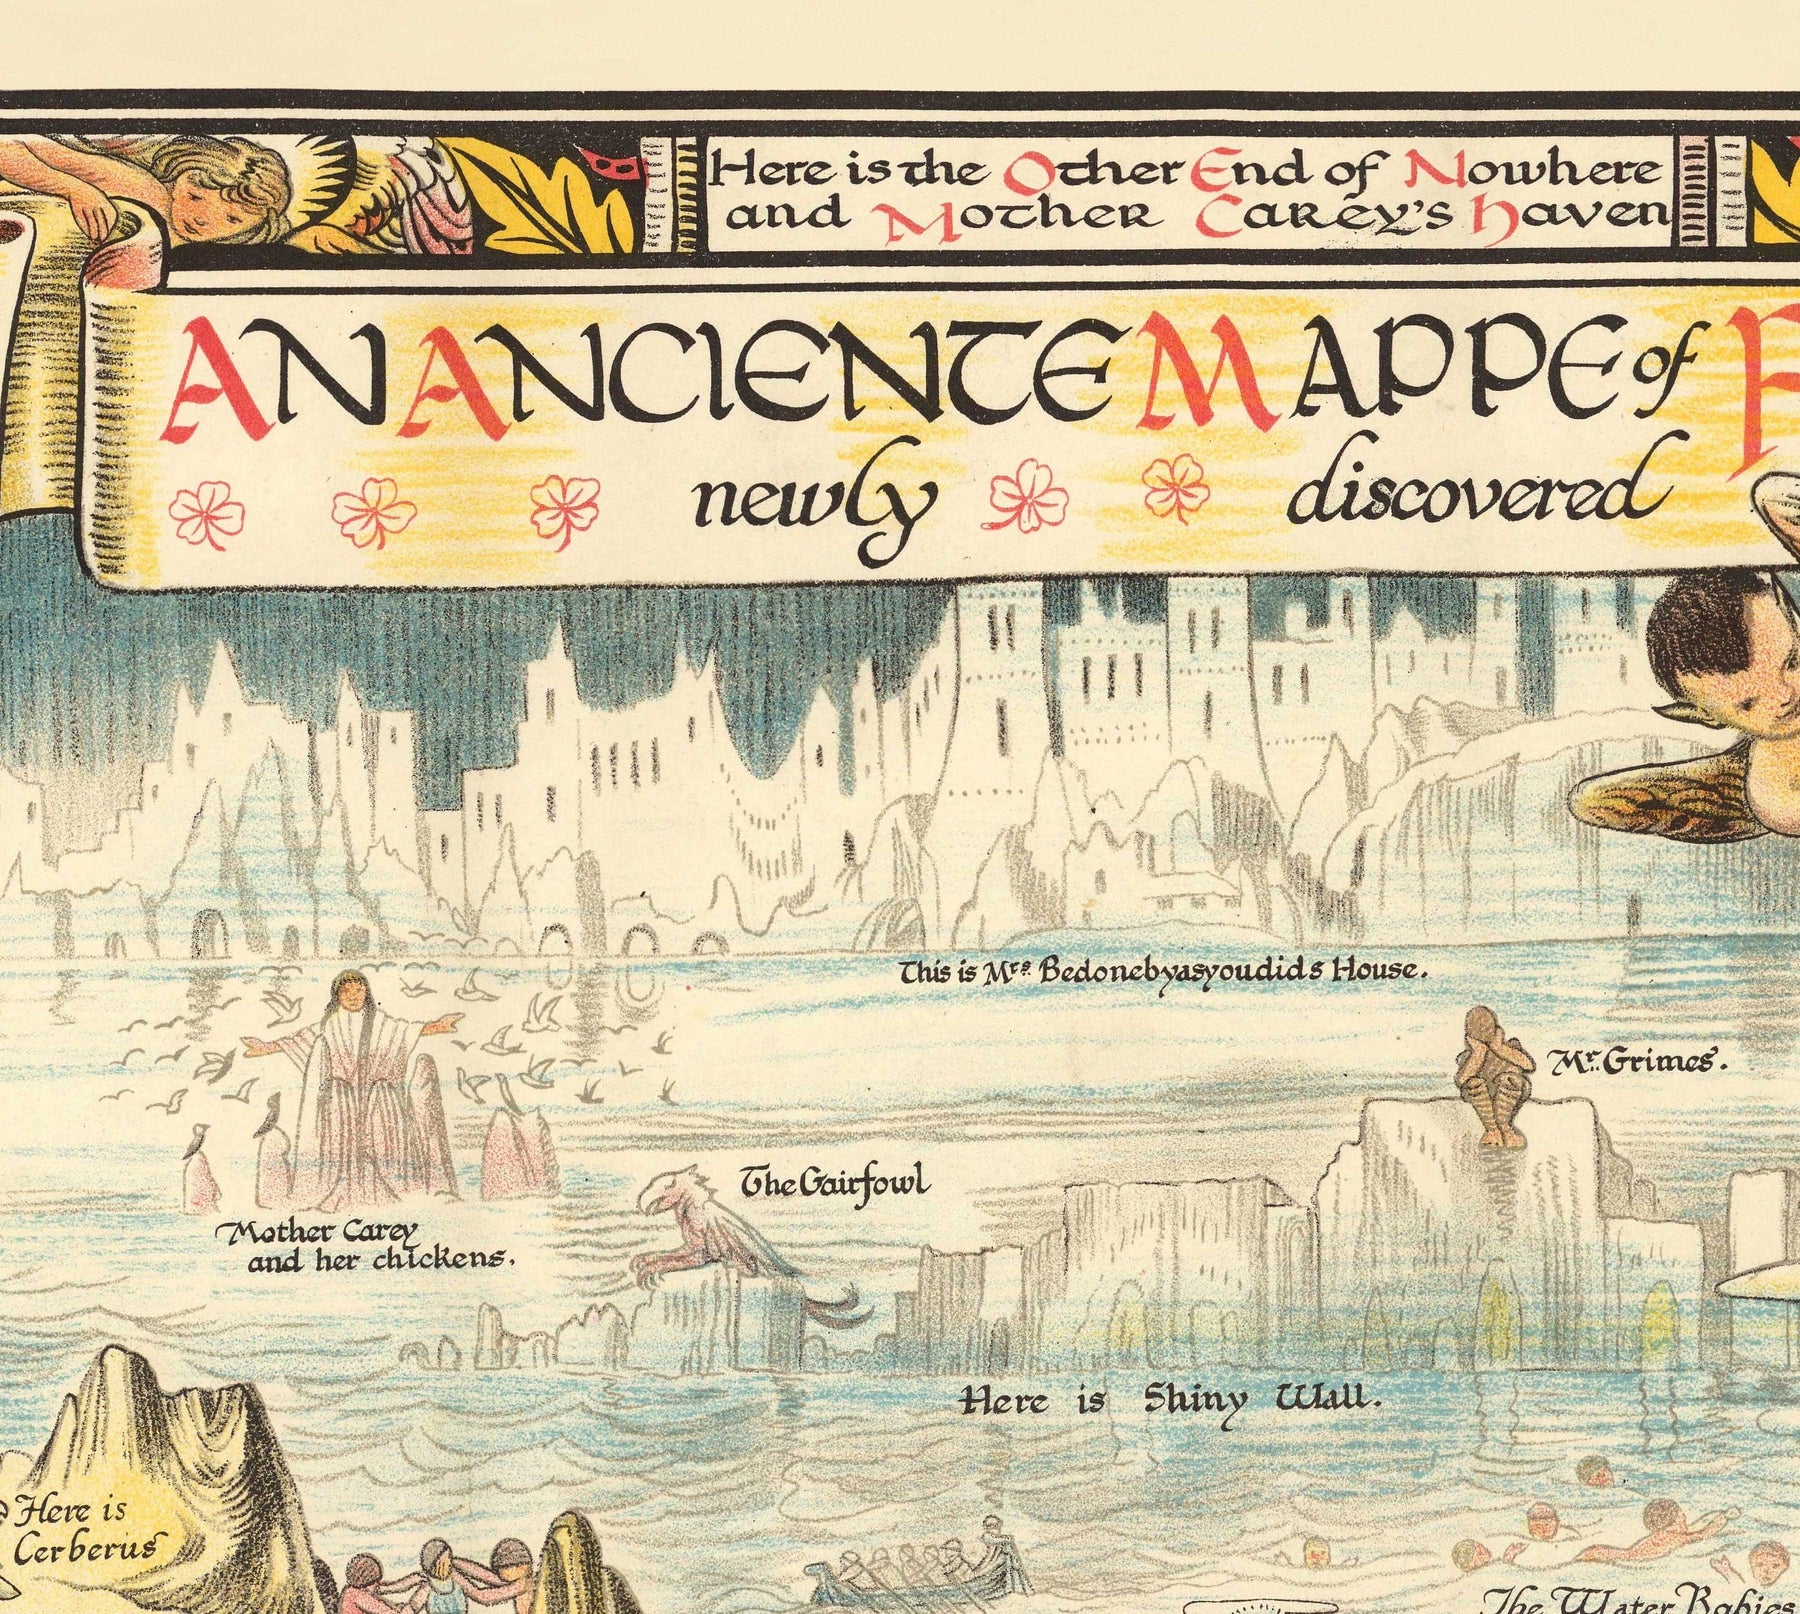 Here is the Other End of Nowhere
and Mother Carey's Haven
An Anciente Mappe of F
newly discovered
This is Mrs. Bedonebyasyoudids House.
Mr. Grimes.
The Gairfowl
Mother Carey
and her chickens.
Here is Shiny Wall.
Here is
Cerberus
The Water Babies